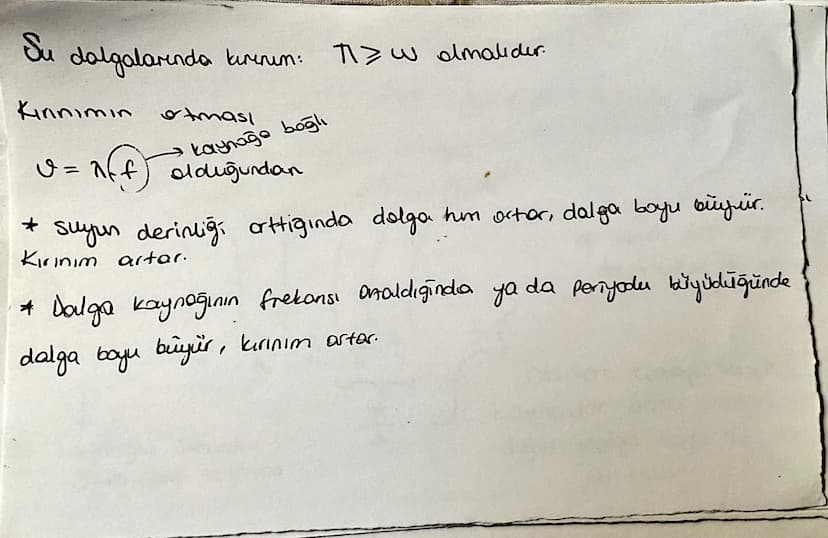 Su dalgalarında kırınım: λ ≥ w olmalıdır.
Kırınımın artması
→ kaynağa bağlı
υ = λ.f olduğundan
* suyun derinliği arttığında dalga hızı artar, dalga boyu büyür.
Kırınım artar.
* Dalga kaynağının frekansı azaldığında ya da periyodu büyüdüğünde
dalga boyu büyür, kırınım artar.